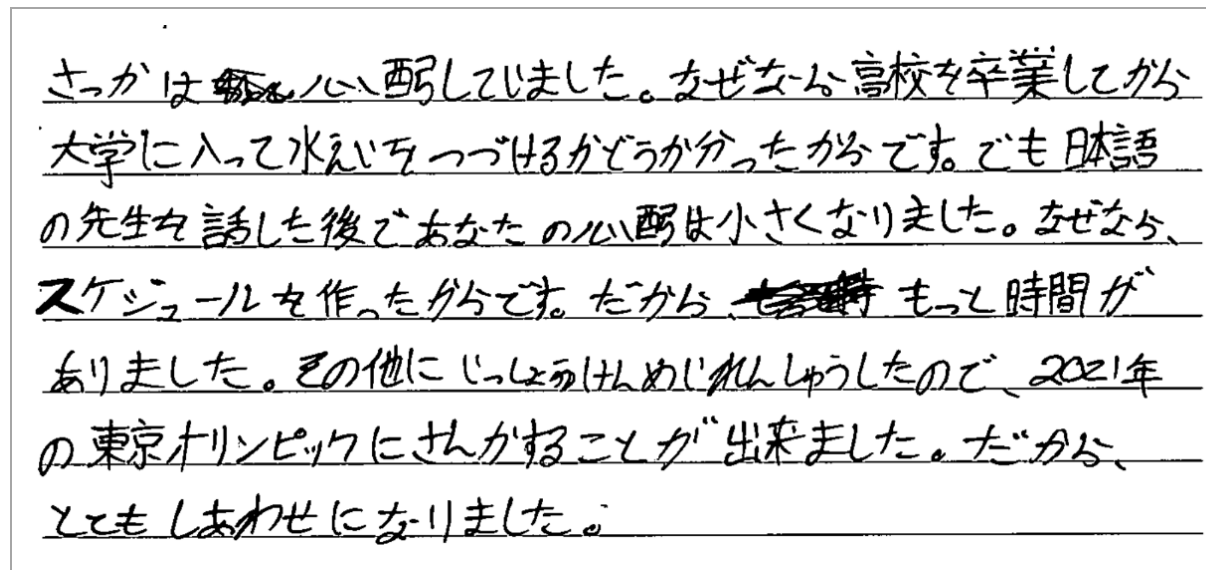 さっかは心配していました。なぜなら高校を卒業してから
大学に入って水えいをつづけるかどうか分ったからです。でも日本語
の先生を話した後であなたの心配は小さくなりました。なぜなら、
スケジュールを作ったからです。だから、もっと時間が
ありました。その他にじっしょうけんめじれんしゅうしたので、2021年
の東京オリンピックにさんかすることが出来ました。だから、
とてもしあわせになりました。